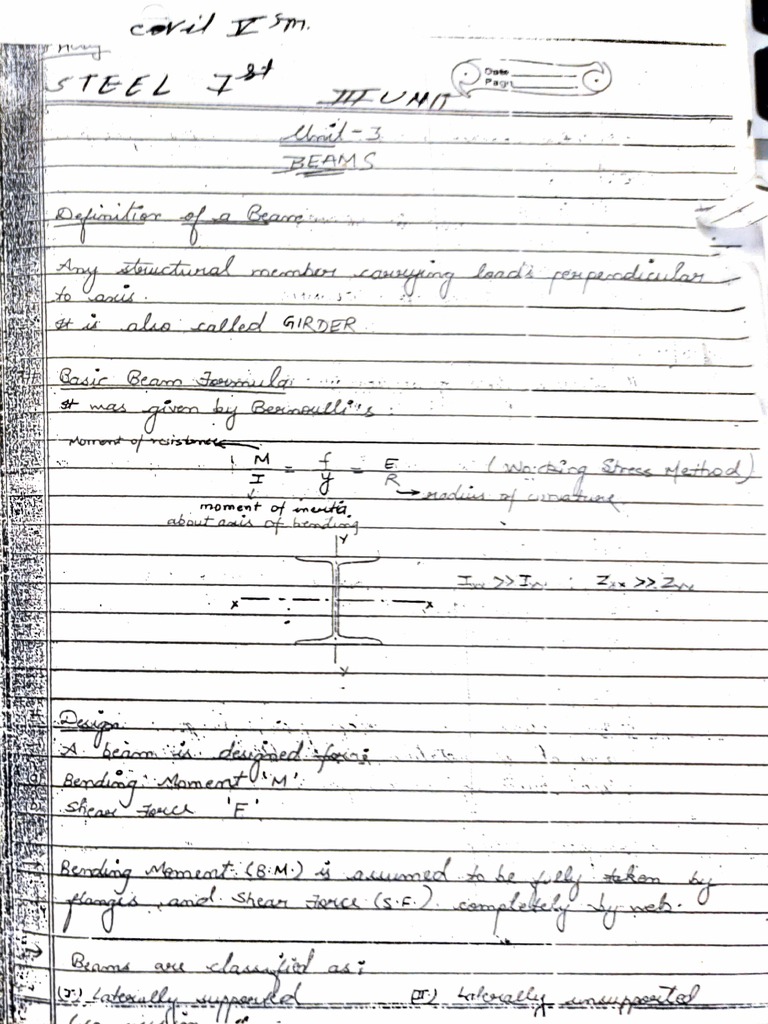 civil V Sm.
STEEL Ist
Date
Page
III UNIT
Unit-3
BEAMS
Definition of a Beam
Any structural member carrying loads perpendicular
to axis.
It is also called GIRDER
Basic Beam Formula:
It was given by Bernoulli's:
Moment of resistance
M/I = f/y = E/R (Working Stress Method)
radius of curvature
moment of inertia
about axis of bending
Y
Ixx >> Iyy Zxx >> Zyy
x x
Y
Design
A beam is designed for:
Bending Moment 'M'
Shear Force 'F'
Bending Moment (B.M.) is assumed to be fully taken by
flanges and Shear Force (S.F.) completely by web.
Beams are classified as:
(I.) Laterally supported (II.) Laterally unsupported